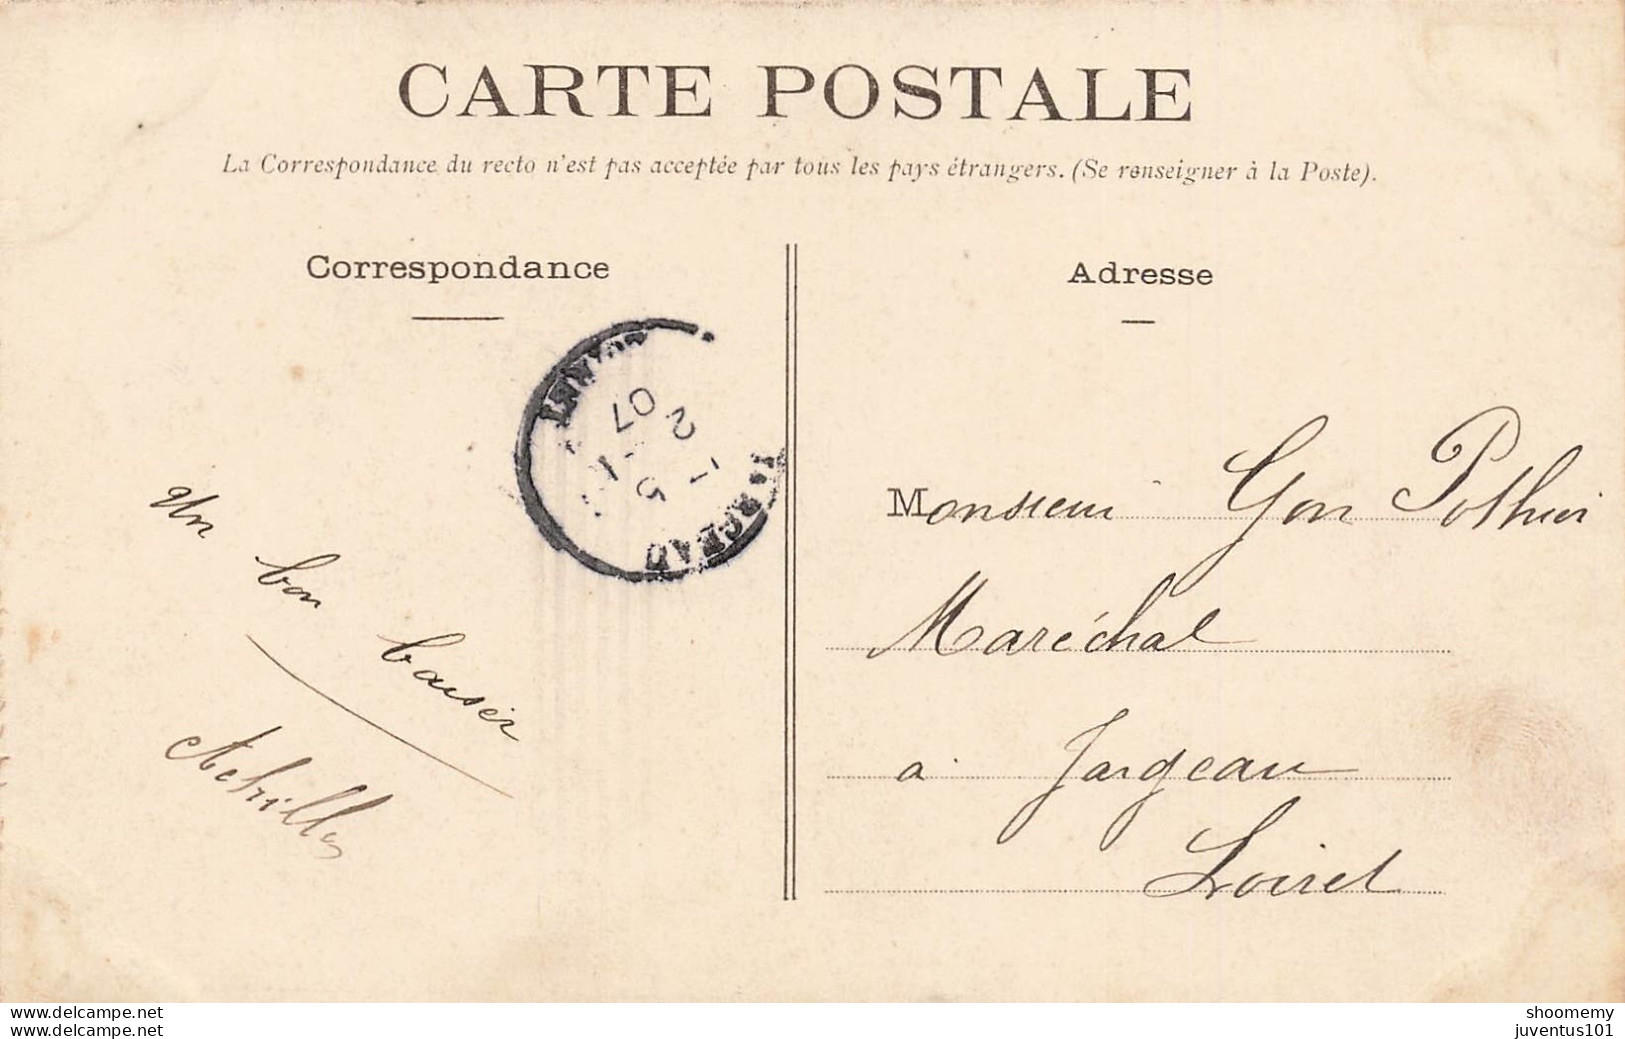 CARTE POSTALE
La Correspondance du recto n'est pas acceptée par tous les pays étrangers. (Se renseigner à la Poste).
Correspondance
Adresse
JARGEAU
5 - 1
2
07
LOIRET
Un bon baiser
Achille
Monsieur Gon Pothier
Maréchal
a Jargeau
Loiret
delcampe.net
delcampe.net
shoomemy
juventus101